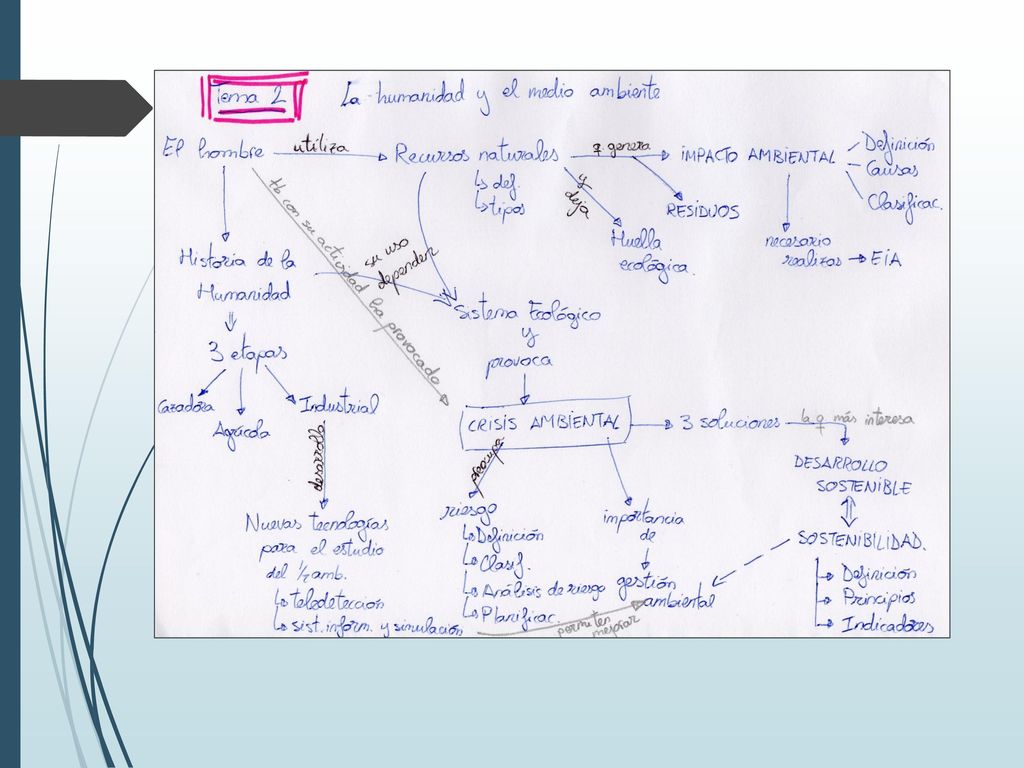 Tema 2
La humanidad y el medio ambiente
El hombre
utiliza
Recursos naturales
q genera
IMPACTO AMBIENTAL
Definición
Causas
Clasificac.
def.
tipos
y
deja
RESIDUOS
Huella
ecológica.
necesario
realizar → EIA
tb con su actividad ha provocado
Historia de la
Humanidad
su uso
dependen
Sistema Ecológico
y
provoca
3 etapas
Cazadora
Agrícola
Industrial
desarrollo
CRISIS AMBIENTAL
3 soluciones
la q más interesa
DESARROLLO
SOSTENIBLE
SOSTENIBILIDAD.
Definición
Principios
Indicadores
preocupa
riesgo
Definición
Clasif.
Análisis de riesgo
Planificac.
importancia
de
gestión
ambiental
Nuevas tecnologías
para el estudio
del ½ amb.
teledetección
sist. inform. y simulación
permiten
mejorar